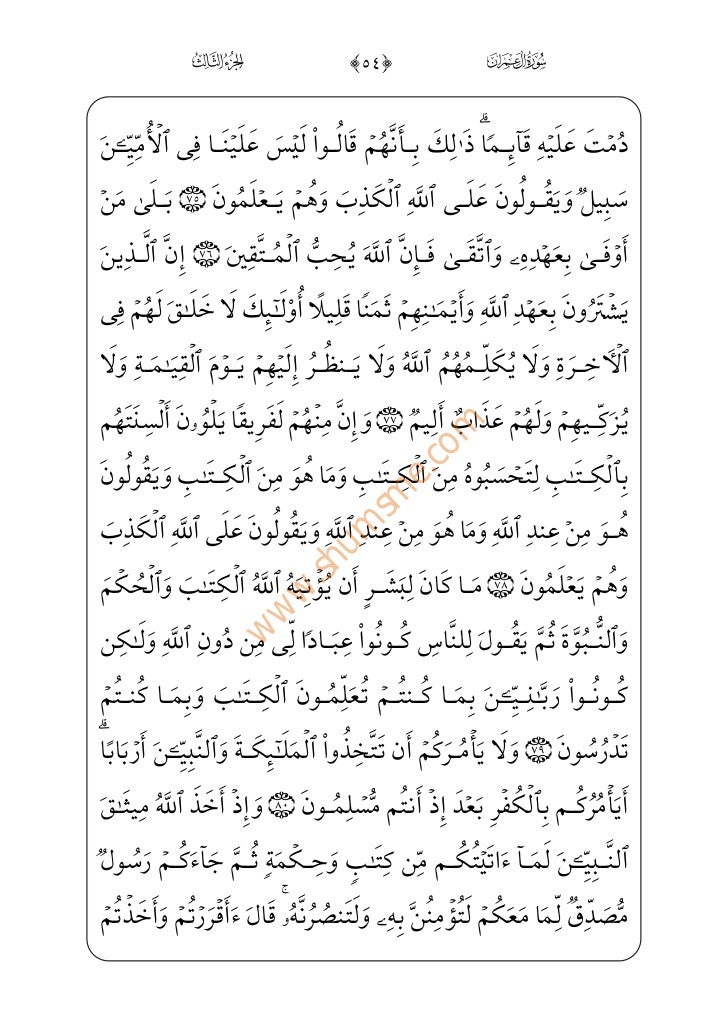 سُورَةُ آلِ عِمْرَانَ ﴿٥٤﴾ الجُزْءُ الثَّالِثُ
دُمْتَ عَلَيْهِ قَآئِمًاۗ ذَٰلِكَ بِأَنَّهُمْ قَالُوا۟ لَيْسَ عَلَيْنَا فِى ٱلْأُمِّيِّـۧنَ
سَبِيلٌ وَيَقُولُونَ عَلَى ٱللَّهِ ٱلْكَذِبَ وَهُمْ يَعْلَمُونَ ٧٥ بَلَىٰ مَنْ
أَوْفَىٰ بِعَهْدِهِۦ وَٱتَّقَىٰ فَإِنَّ ٱللَّهَ يُحِبُّ ٱلْمُتَّقِينَ ٧٦ إِنَّ ٱلَّذِينَ
يَشْتَرُونَ بِعَهْدِ ٱللَّهِ وَأَيْمَـٰنِهِمْ ثَمَنًا قَلِيلًا أُو۟لَـٰٓئِكَ لَا خَلَـٰقَ لَهُمْ فِى
ٱلْـَٔاخِرَةِ وَلَا يُكَلِّمُهُمُ ٱللَّهُ وَلَا يَنظُرُ إِلَيْهِمْ يَوْمَ ٱلْقِيَـٰمَةِ وَلَا
يُزَكِّيهِمْ وَلَهُمْ عَذَابٌ أَلِيمٌ ٧٧ وَإِنَّ مِنْهُمْ لَفَرِيقًا يَلْوُۥنَ أَلْسِنَتَهُم
بِٱلْكِتَـٰبِ لِتَحْسَبُوهُ مِنَ ٱلْكِتَـٰبِ وَمَا هُوَ مِنَ ٱلْكِتَـٰبِ وَيَقُولُونَ
هُوَ مِنْ عِندِ ٱللَّهِ وَمَا هُوَ مِنْ عِندِ ٱللَّهِ وَيَقُولُونَ عَلَى ٱللَّهِ ٱلْكَذِبَ
وَهُمْ يَعْلَمُونَ ٧٨ مَا كَانَ لِبَشَرٍ أَن يُؤْتِيَهُ ٱللَّهُ ٱلْكِتَـٰبَ وَٱلْحُكْمَ
وَٱلنُّبُوَّةَ ثُمَّ يَقُولَ لِلنَّاسِ كُونُوا۟ عِبَادًا لِّى مِن دُونِ ٱللَّهِ وَلَـٰكِن
كُونُوا۟ رَبَّـٰنِيِّـۧنَ بِمَا كُنتُمْ تُعَلِّمُونَ ٱلْكِتَـٰبَ وَبِمَا كُنتُمْ
تَدْرُسُونَ ٧٩ وَلَا يَأْمُرَكُمْ أَن تَتَّخِذُوا۟ ٱلْمَلَـٰٓئِكَةَ وَٱلنَّبِيِّـۧنَ أَرْبَابًاۗ
أَيَأْمُرُكُم بِٱلْكُفْرِ بَعْدَ إِذْ أَنتُم مُّسْلِمُونَ ٨٠ وَإِذْ أَخَذَ ٱللَّهُ مِيثَـٰقَ
ٱلنَّبِيِّـۧنَ لَمَآ ءَاتَيْتُكُم مِّن كِتَـٰبٍ وَحِكْمَةٍ ثُمَّ جَآءَكُمْ رَسُولٌ
مُّصَدِّقٌ لِّمَا مَعَكُمْ لَتُؤْمِنُنَّ بِهِۦ وَلَتَنصُرُنَّهُۥۚ قَالَ ءَأَقْرَرْتُمْ وَأَخَذْتُمْ
www.shumsme.com